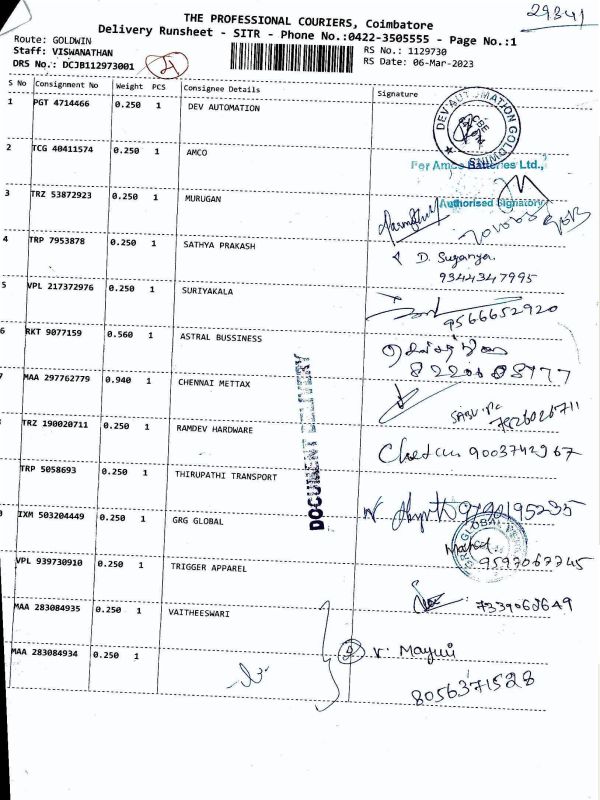 29341
THE PROFESSIONAL COURIERS, Coimbatore
Delivery Runsheet - SITR - Phone No.:0422-3505555 - Page No.:1
Route: GOLDWIN
RS No.: 1129730
Staff: VISWANATHAN
RS Date: 06-Mar-2023
DRS No.: DCJB112973001
S No Consignment No Weight PCS Consignee Details Signature
1 PGT 4714466 0.250 1 DEV AUTOMATION
DEV AUTOMATION GOLDWINS
CBE
2 TCG 40411574 0.250 1 AMCO
For Amco Batteries Ltd.,
Authorised Signatory
3 TRZ 53872923 0.250 1 MURUGAN
4 TRP 7953878 0.250 1 SATHYA PRAKASH
D. Suganya
9344347995
5 VPL 217372976 0.250 1 SURIYAKALA
9566652920
6 RKT 9077159 0.560 1 ASTRAL BUSSINESS
7 MAA 297762779 0.940 1 CHENNAI METTAX
DOCUMENT
TRZ 190020711 0.250 1 RAMDEV HARDWARE
Chetan 9003742967
TRP 5058693 0.250 1 THIRUPATHI TRANSPORT
IXM 503204449 0.250 1 GRG GLOBAL
GRG GLOBAL
9597067745
VPL 939730910 0.250 1 TRIGGER APPAREL
7339062649
MAA 283084935 0.250 1 VAITHEESWARI
MAA 283084934 0.250 1
2 V. Mayuri
8056371528